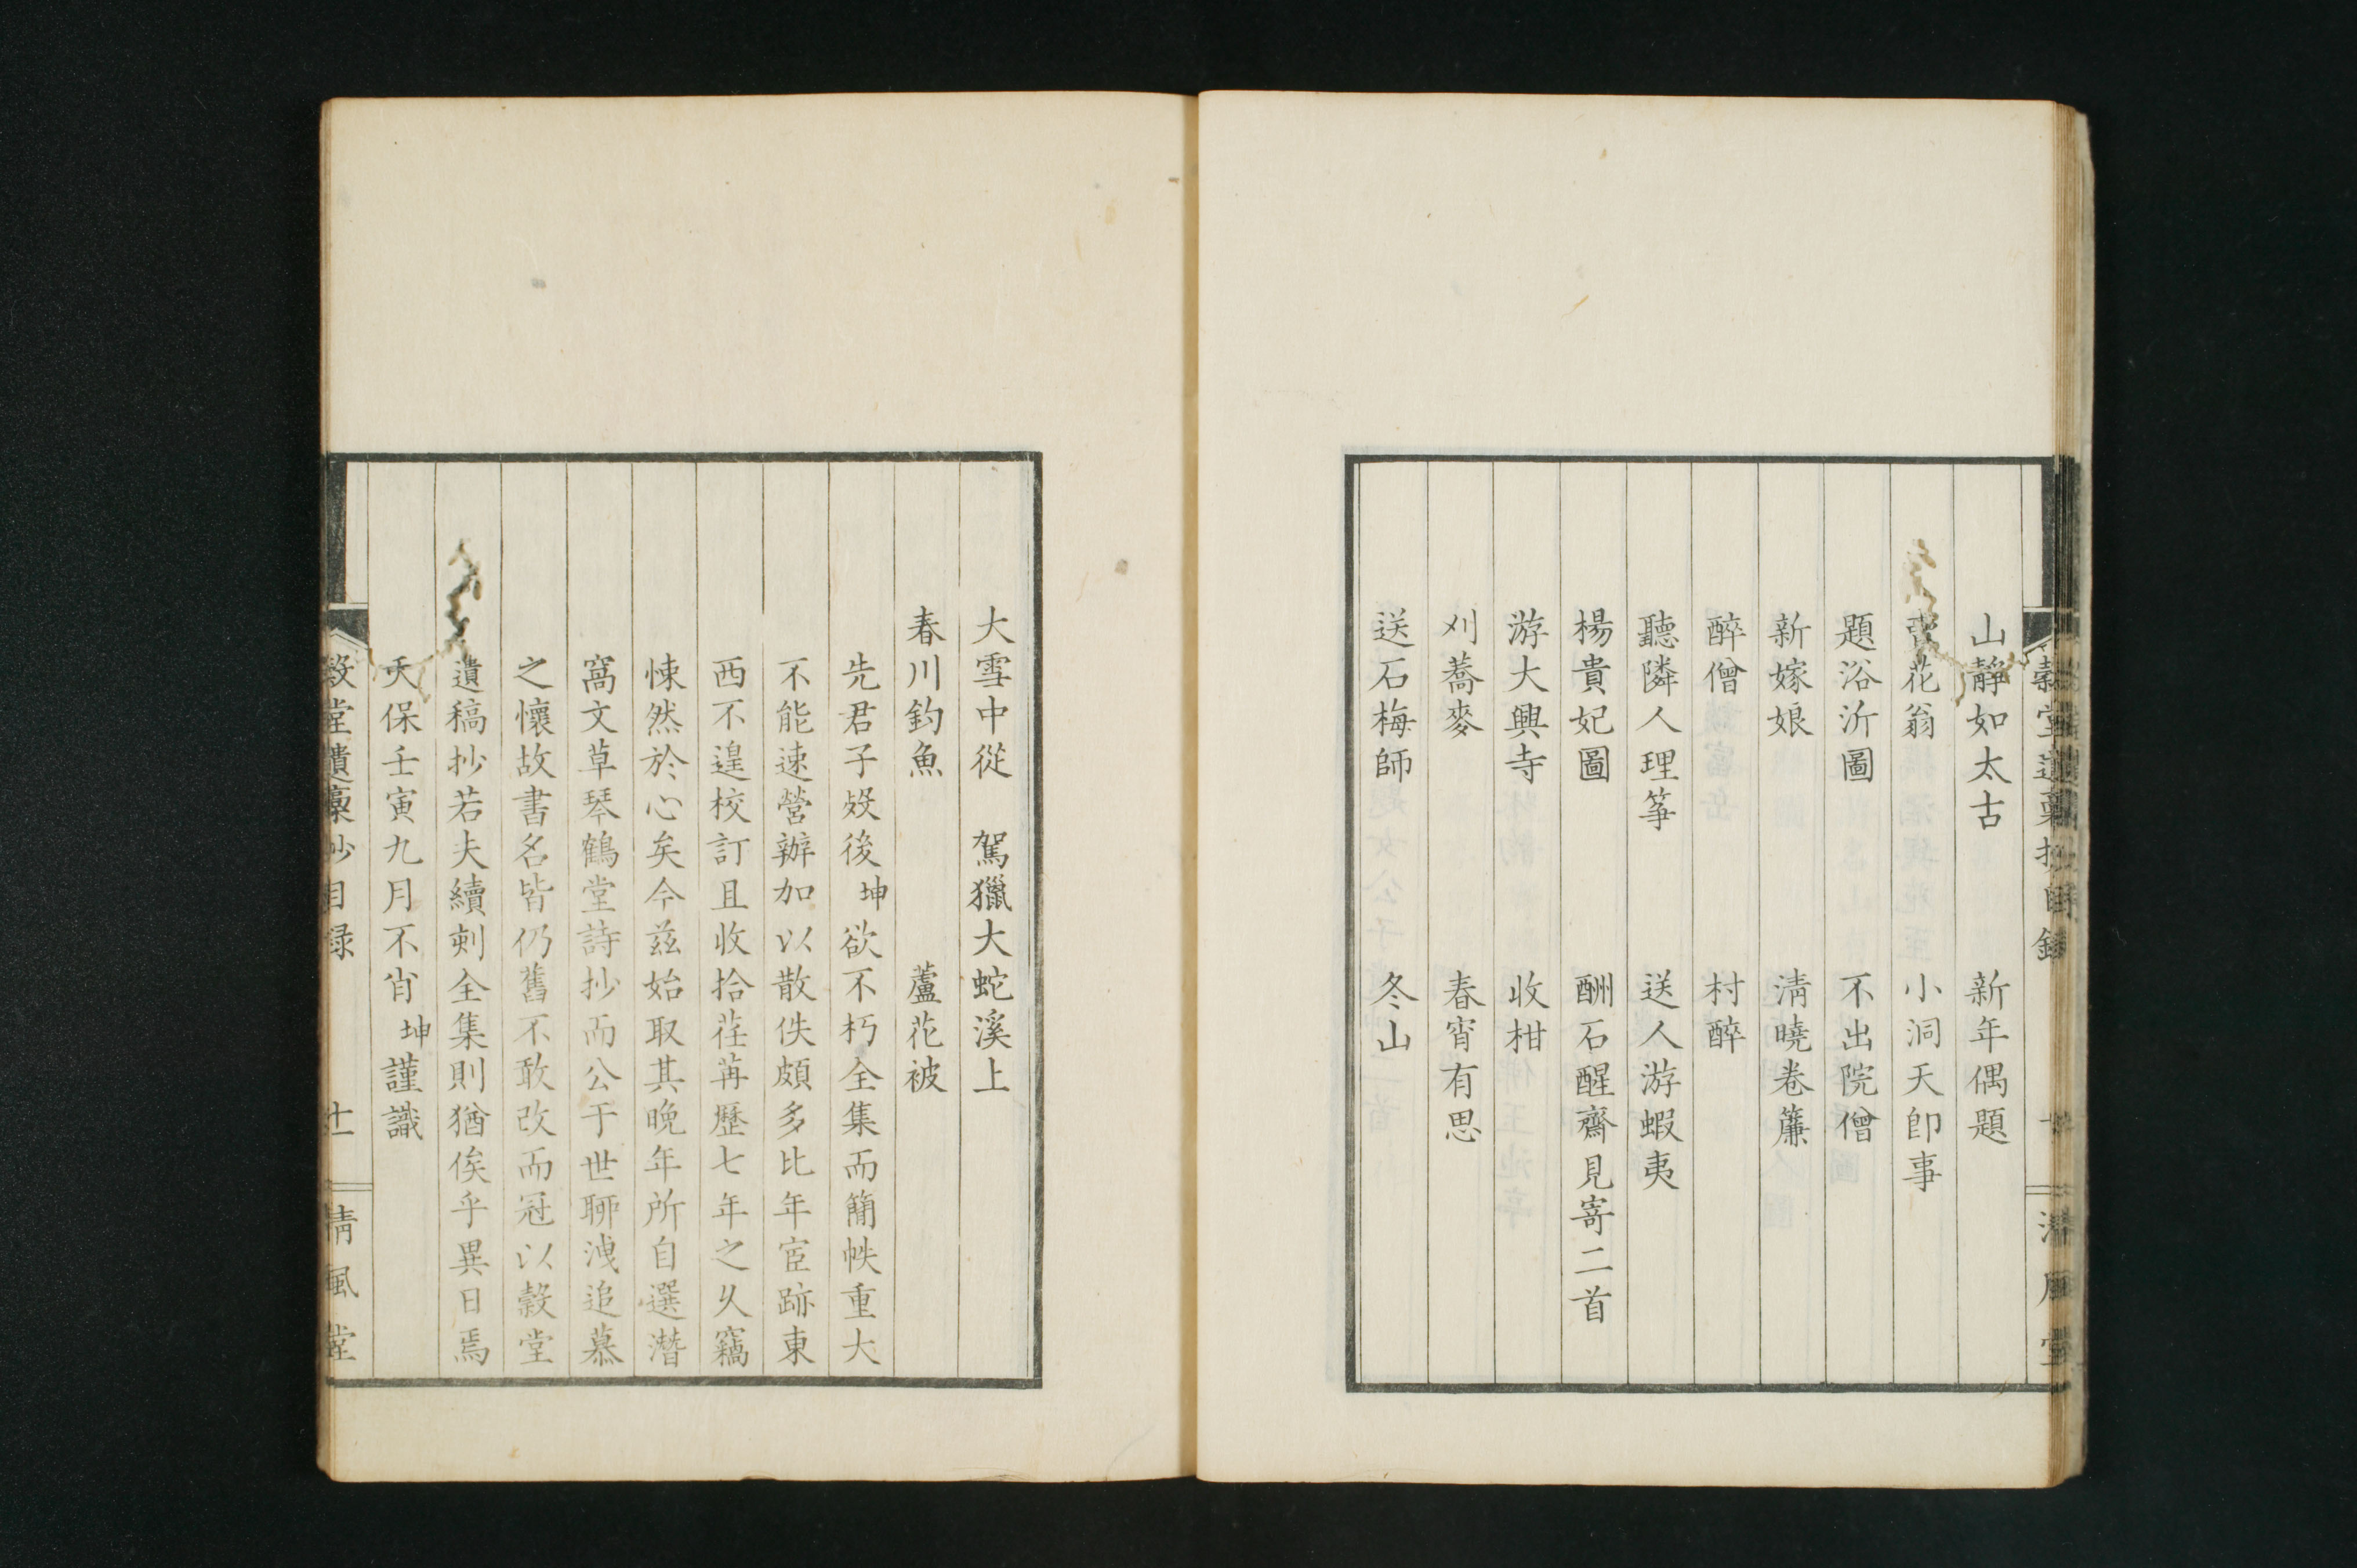 山靜如太古　新年偶題
賣花翁　小洞天卽事
題浴沂圖　不出院僧
新嫁娘　淸曉卷簾
醉僧　村醉
聽隣人理筝　送人游蝦夷
楊貴妃圖　酬石醒齋見寄二首
游大興寺　收柑
刈蕎麥　春宵有思
送石梅師　冬山
大雪中從　駕獵大蛇溪上
春川釣魚　蘆花被
先君子歿後坤欲不朽全集而簡帙重大
不能速營辦加以散佚頗多比年宦跡東
西不遑校訂且收拾荏苒歷七年之久竊
悚然於心矣今茲始取其晚年所自選潛
窩文草琴鶴堂詩抄而公于世聊洩追慕
之懷故書名皆仍舊不敢改而冠以榖堂
遺稿抄若夫續刻全集則猶俟乎異日焉
天保壬寅九月不肖坤謹識
榖堂遺稾抄目錄　十一　淸風堂